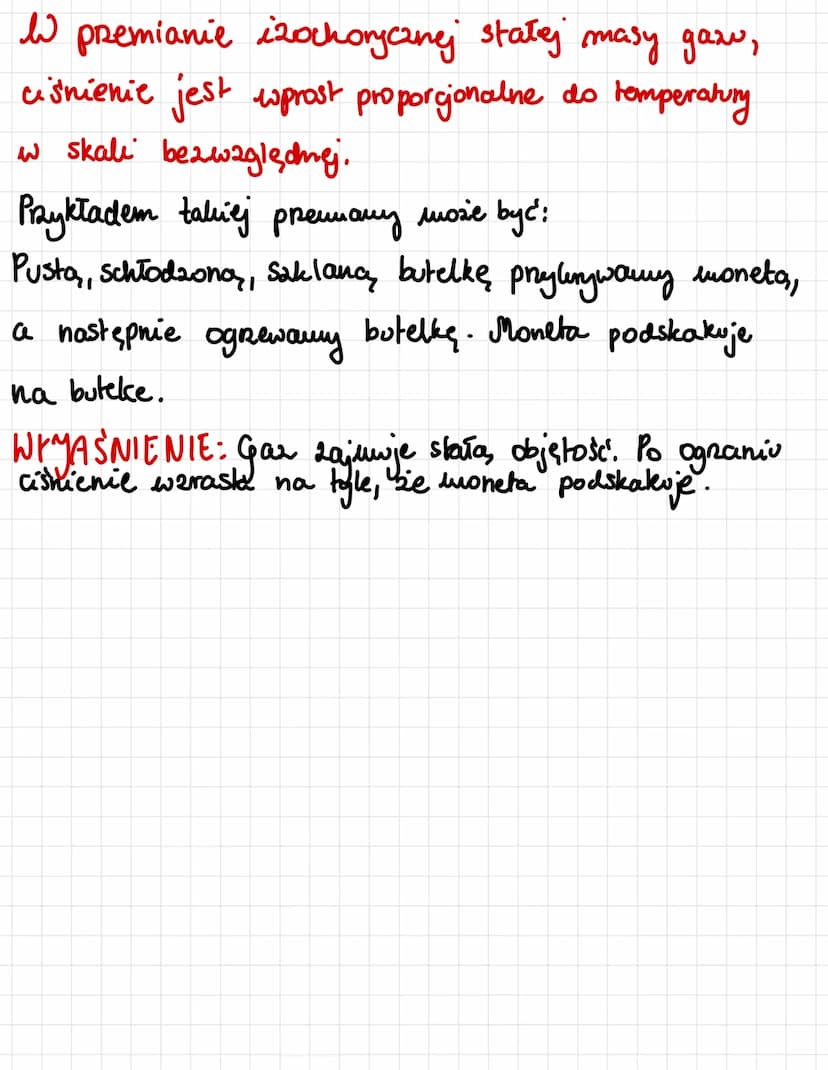 W przemianie izochorycznej stałej masy gazu,
ciśnienie jest wprost proporcjonalne do temperatury
w skali bezwzględnej.
Przykładem takiej przemiany może być:
Pustą, schłodzoną, szklaną butelkę przykrywamy monetą,
a następnie ogrzewamy butelkę. Moneta podskakuje
na butelce.
WYJAŚNIENIE: Gaz zajmuje stałą objętość. Po ogrzaniu
ciśnienie wzrasta na tyle, że moneta podskakuje.